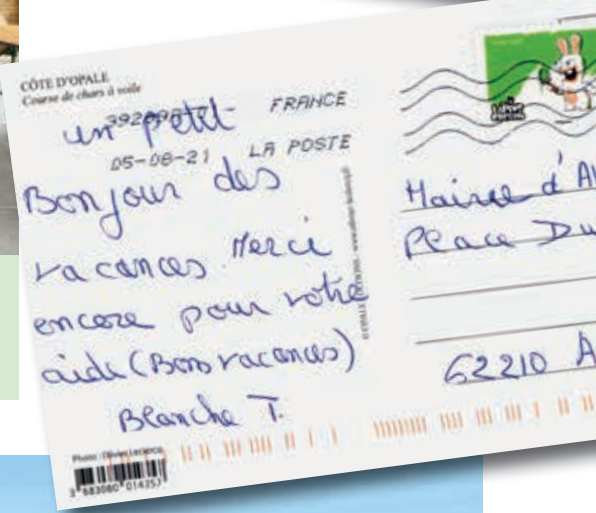 CÔTE D'OPALE
Course de chars à voile
FRANCE
05-08-21 LA POSTE
un petit
Bonjour des
vacances. Merci
encore pour votre
aide (Bons vacances)
Blanche T.
Mairie d'Av
Place Du
62210 A
Photo : Olivier Leclercq
3 683080 014357